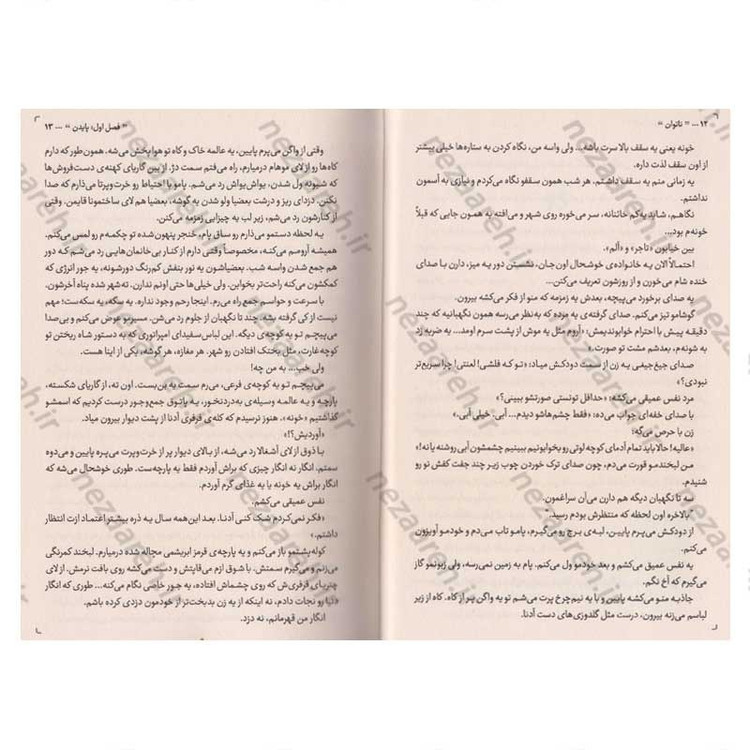 ۱۲ ... " ناتوان "
خونه یعنی یه سقف بالا سرت باشه... ولی واسه من، نگاه کردن به ستاره‌ها خیلی بیشتر
از اون سقف لذت داره.
یه زمانی منم یه سقف داشتم. هر شب همون سقفو نگاه می‌کردم و نیازی به آسمون
نداشتم.
نگاهم، شاید یه‌کم خائنانه، سر می‌خوره روی شهر و می‌افته به همون جایی که قبلاً
خونه‌م بود...
بین خیابون «تاجر» و «الم».
احتمالاً الان یه خانواده‌ی خوشحال اون‌جان، نشستن دور یه میز، دارن با صدای
خنده شام می‌خورن و از روزشون تعریف می‌کنن...
یه صدای برخورد می‌پیچه، بعدش یه زمزمه که منو از فکر می‌کشه بیرون.
گوشامو تیز می‌کنم. صدای گرفته‌ی یه مرده که به‌نظر می‌رسه همون نگهبانیه که چند
دقیقه پیش با احترام خوابوندیمش: «آروم مثل یه موش از پشت سرم اومد... یه ضربه زد
به شونه‌م، بعدشم مشت تو صورت.»
صدای جیغ‌جیغی یه زن از سمت دودکش میاد: «تو که فلشی، لعنتی! چرا سریع‌تر
نبودی؟»
مرد نفس عمیقی می‌کشه: «حداقل تونستی صورتشو ببینی؟»
با صدای خفه‌ای جواب می‌ده: «فقط چشم‌هاشو دیدم... آبی. خیلی آبی.»
زن با حرص می‌گه:
«عالیه! حالا باید تمام آدمای کوچه لوتی رو بخوابونیم ببینیم چشمشون آبی روشنه یا نه!»
من لبخندمو قورت می‌دم، چون صدای ترک خوردن چوب زیر چند جفت کفش نو رو
شنیدم.
سه تا نگهبان دیگه هم دارن می‌آن سراغمون.
"بالاخره اون لحظه که منتظرش بودم رسید."
از دودکش می‌پرم پایین، لبه‌ی برج رو می‌گیرم، پامو تاب می‌دم و خودمو آویزون
می‌کنم.
یه نفس عمیق می‌کشم و بعد خودمو ول می‌کنم. پام به زمین نمی‌رسه، ولی زبونمو گاز
می‌گیرم که آخ نگم.
جاذبه منو می‌کشه پایین و با یه نیم‌چرخ پرت می‌شم تو یه واگن پر از کاه. کاه از زیر
لباسم می‌زنه بیرون، درست مثل گلدوزی‌های دست آدنا.
" فصل اول: پایدن " ... ۱۳
وقتی از واگن می‌پرم پایین، یه عالمه خاک و کاه تو هوا پخش می‌شه. همون‌طور که دارم
کاه‌ها رو از لای موهام درمیارم، راه می‌افتم سمت دژ، از بین گاریای کهنه‌ی دست‌فروش‌ها
که شبونه ول شدن، یواش‌یواش رد می‌شم. پامو با احتیاط رو خرت‌وپرتا می‌ذارم که صدا
نکنن. دزدای ریز و درشت بعضیا ولو شدن یه گوشه، بعضیا هم لای ساختمونا قایمن. وقتی
از کنارشون رد می‌شم، زیر لب یه چیزایی زمزمه می‌کنن.
یه لحظه دستمو می‌ذارم رو ساق پام، خنجر پنهون‌شده تو چکمه‌م رو لمس می‌کنم.
همیشه آرومم می‌کنه، مخصوصاً وقتی دارم از کنار بی‌خانمان‌هایی رد می‌شم که دور
هم جمع شدن واسه شب. بعضیاشون یه نور بنفش کم‌رنگ دورشونه، یه جور انرژی که
کمکشون می‌کنه راحت‌تر بخوابن. ولی خیلی‌ها حتی اونم ندارن. ته شهر شده پناه آخرشون.
با سرعت و حواس جمع راه می‌رم. اینجا رحم وجود نداره. یه سکه، یه سکه‌ست؛ مهم
نیست از کی گرفته بشه. چند تا نگهبان از جلوم رد می‌شن. مسیرمو عوض می‌کنم و بی‌صدا
می‌پیچم تو یه کوچه‌ی دیگه. این لباس‌سفیدای امپراتوری که به دستور شاه ریختن تو
کوچه غارت، مثل بختک افتادن رو شهر. هر مغازه، هر گوشه، یکی از اینا هست.
ولی خب... به من چه!
می‌پیچم تو یه کوچه‌ی فرعی، می‌رم سمت یه بن‌بست. اون ته، از گاریای شکسته،
پارچه و یه عالمه وسیله‌ی به‌دردنخور، یه پاتوق جمع‌وجور درست کردیم که اسمشو
گذاشتیم «خونه». هنوز نرسیدم که کله‌ی فرفری آدنا از پشت دیوار بیرون میاد.
«آوردیش؟!»
با ذوق از لای آشغالا رد می‌شه، از بالای دیوار پر از خرت‌وپرت می‌پره پایین و می‌دوه
سمتم. انگار نه انگار چیزی که براش آوردم فقط یه پارچه‌ست. طوری خوشحال می‌شه که
انگار براش یه خونه یا یه غذای گرم آوردم.
نفس عمیقی می‌کشم.
«فکر نمی‌کردم شک کنی آدنا. بعد این‌همه سال یه ذره بیشتر اعتماد ازت انتظار
داشتم.»
کوله‌پشتمو باز می‌کنم و یه پارچه‌ی قرمز ابریشمی مچاله شده درمیارم. لبخند کمرنگی
می‌زنم و می‌گیرم سمتش. با شوق ازم می‌قاپتش و دست می‌کشه روی بافت نرمش. از لای
چتریای فرفری‌ش که روی چشماش افتاده، یه جور خاصی نگام می‌کنه... طوری که انگار
دنیا رو نجات دادم، نه اینکه از یه زن بدبخت‌تر از خودمون دزدی کرده باشم.
انگار من قهرمانم، نه دزد.
nezaareh.ir